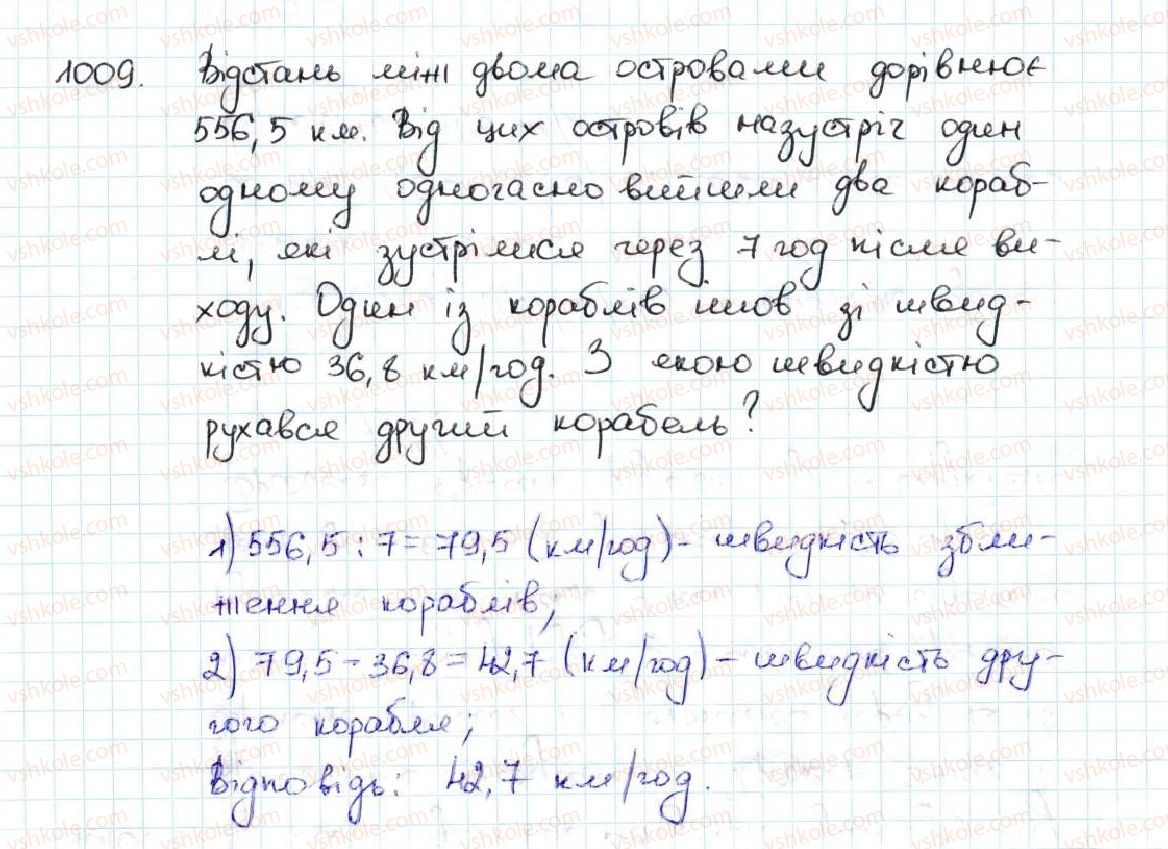 1009. Відстань між двома островами дорівнює
556,5 км. Від цих островів назустріч один
одному одночасно вийшли два кораб-
лі, які зустрілися через 7 год після ви-
ходу. Один із кораблів йшов зі швид-
кістю 36,8 км/год. З якою швидкістю
рухався другий корабель?
1) 556,5 : 7 = 79,5 (км/год) - швидкість збли-
ження кораблів;
2) 79,5 - 36,8 = 42,7 (км/год) - швидкість дру-
гого корабля;
Відповідь: 42,7 км/год.